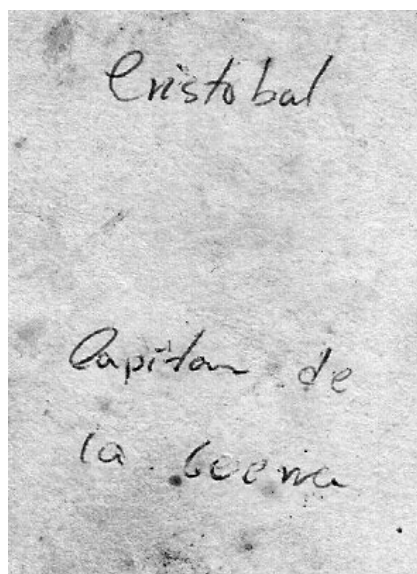 Cristobal
Capitan de
la Guerra